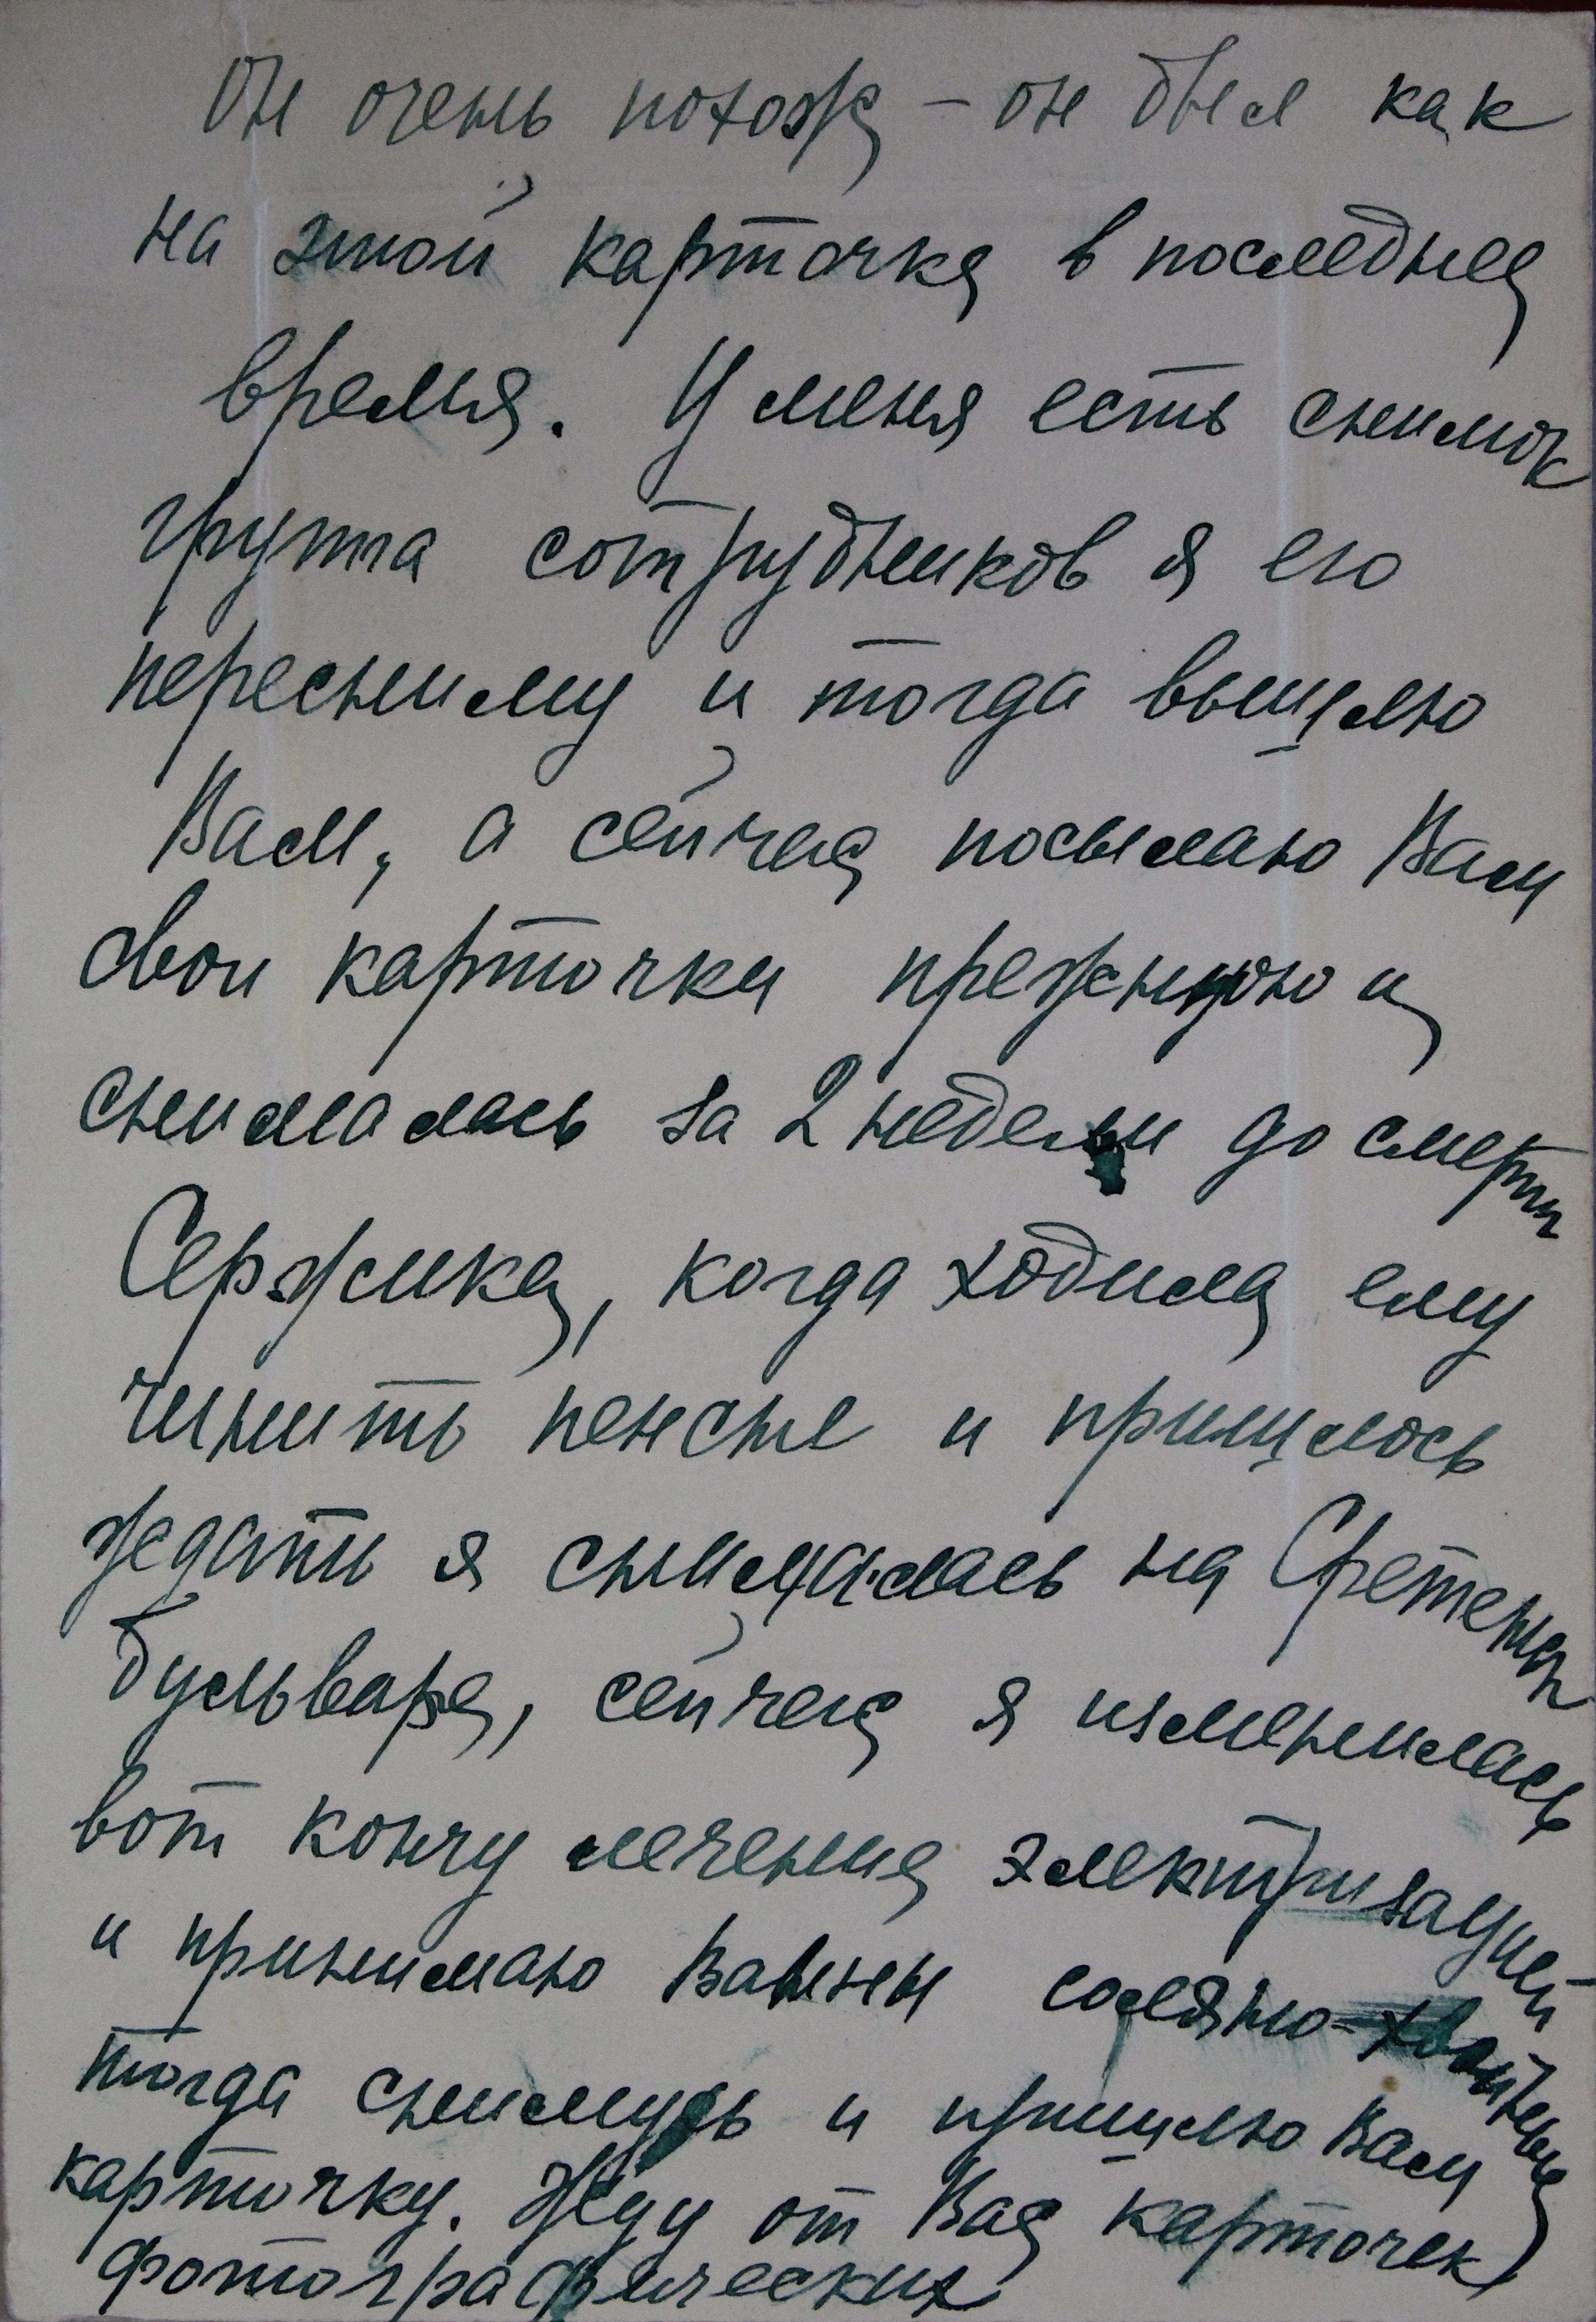 Он очень похож – он был как
на этой карточке в последнее
время. У меня есть снимок
группа сотрудников я его
пересниму и тогда вышлю
Вам, а сейчас посылаю Вам
свои карточки прежнюю и
снималась за 2 недели до смерти
Сержика, когда ходила ему
чинить пенсне и пришлось
ждать я снималась на Сретенск
бульваре, сейчас я изменилась
вот кончу лечение электризацией
и принимаю Ванны соляно-хвойные
тогда снимусь и пришлю Вам
карточку. Жду от Вас карточек
фотографических